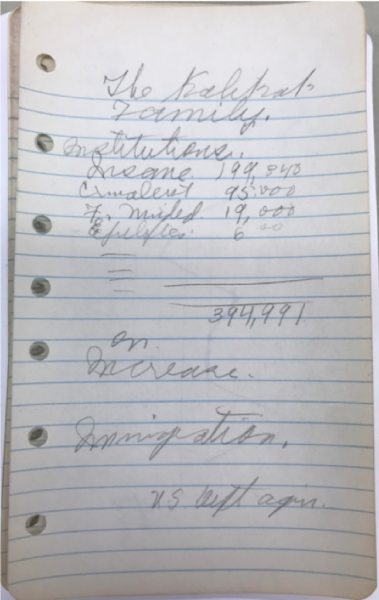 The Kalikak
Family.
Institutions.
Insane 199,840
95.000
F. Minded 19,000
Epileptes. 6 00
394,991
on
Increase.
Immigration.
U.S. Dept agri.